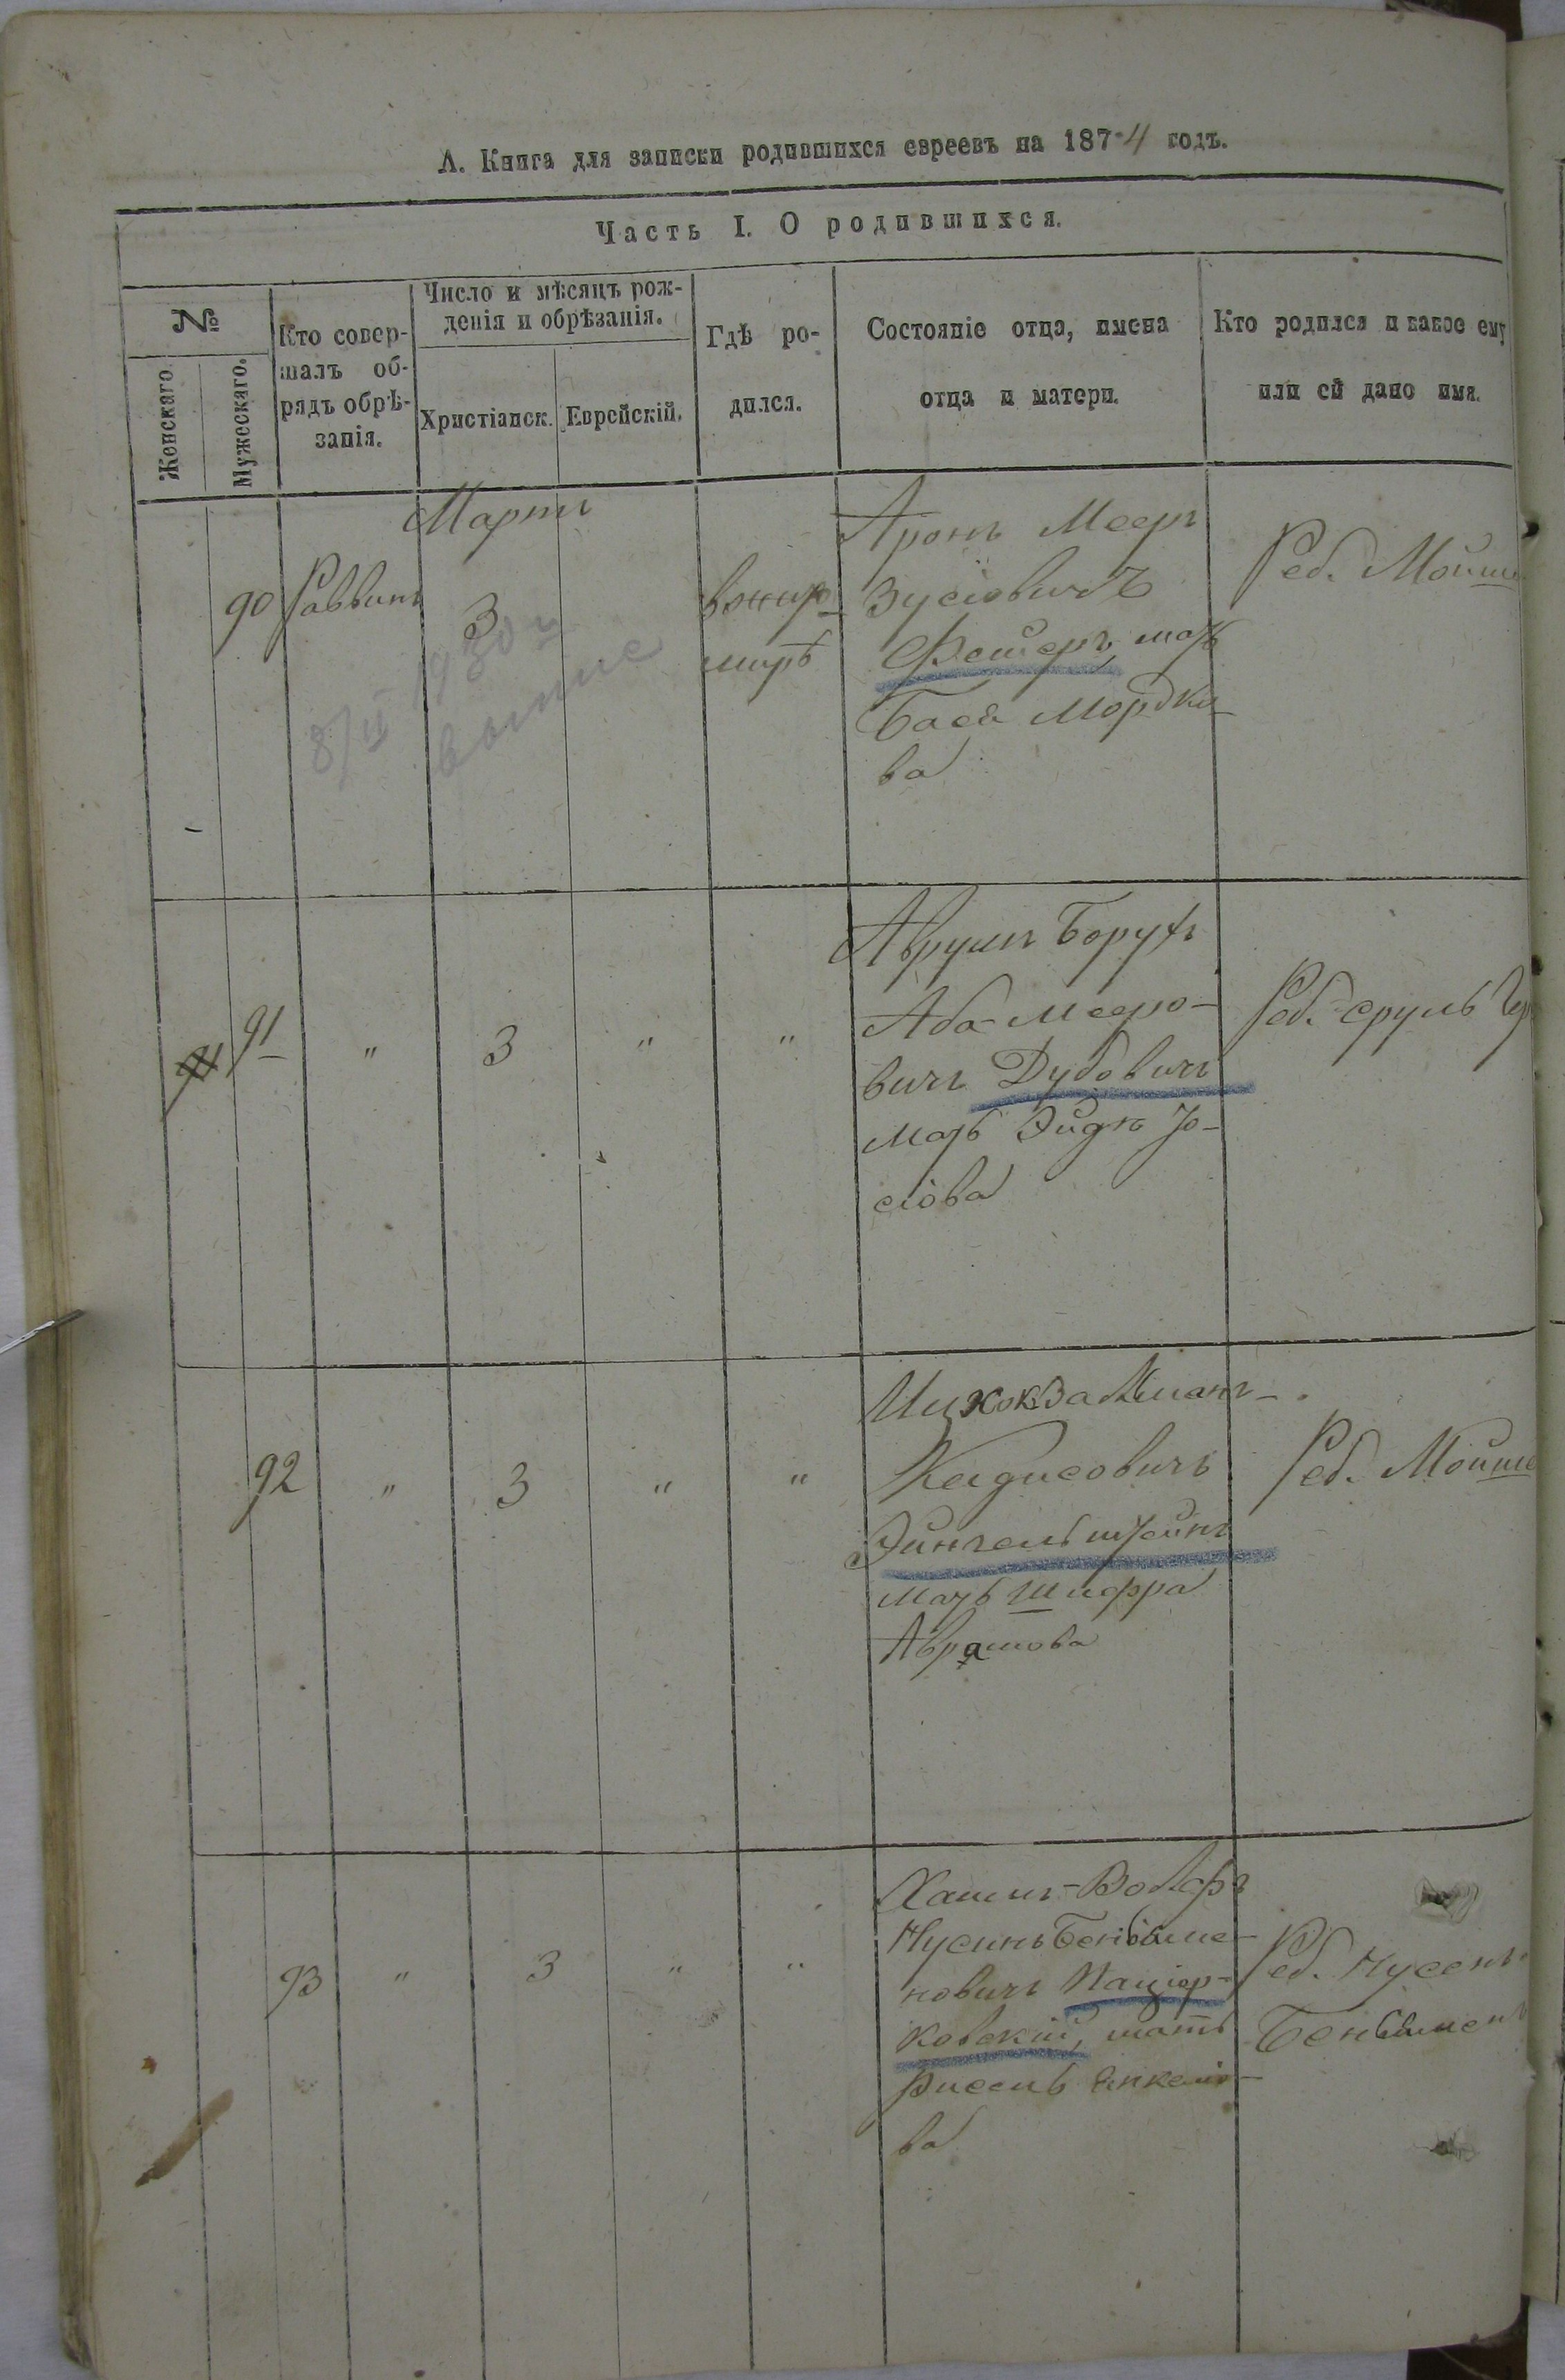 А. Книга для записки родившихся евреевъ на 187-4 годъ.
Часть I. О родившихся.
№
Женскаго.
Мужескаго.
Кто совер-
шалъ об-
рядъ обрѣ-
занія.
Число и мѣсяцъ рож-
денія и обрѣзанія.
Христіанск.
Еврейскій.
Гдѣ ро-
дился.
Состояніе отца, имена
отца и матери.
Кто родился и какое ему
или ей дано имя.
Мартъ
90
Раввинъ
3
вжито
миръ
Аронъ Мееръ
Зусіовичъ
Фейеръ, мать
Бася Мордко-
ва
Реб. Мойше
1930
91
"
3
"
"
Аврумъ Борухъ
Аба-Мееро-
вичъ Дубовичъ
мать Эйдя Іо-
сіова
Реб. Сруль
92
"
3
"
"
Ицхок Залманъ-
Кадисовичъ
Эйнгельштейнъ
мать Шифра
Аврамова
Реб. Мойше
93
"
3
"
"
Хаимъ-Вольфъ
Нусинъ Беньяме-
новичъ Пацюр-
ковскій, мать
Рисель Янкеліо-
ва
Реб. Нусенъ
Беньяменъ